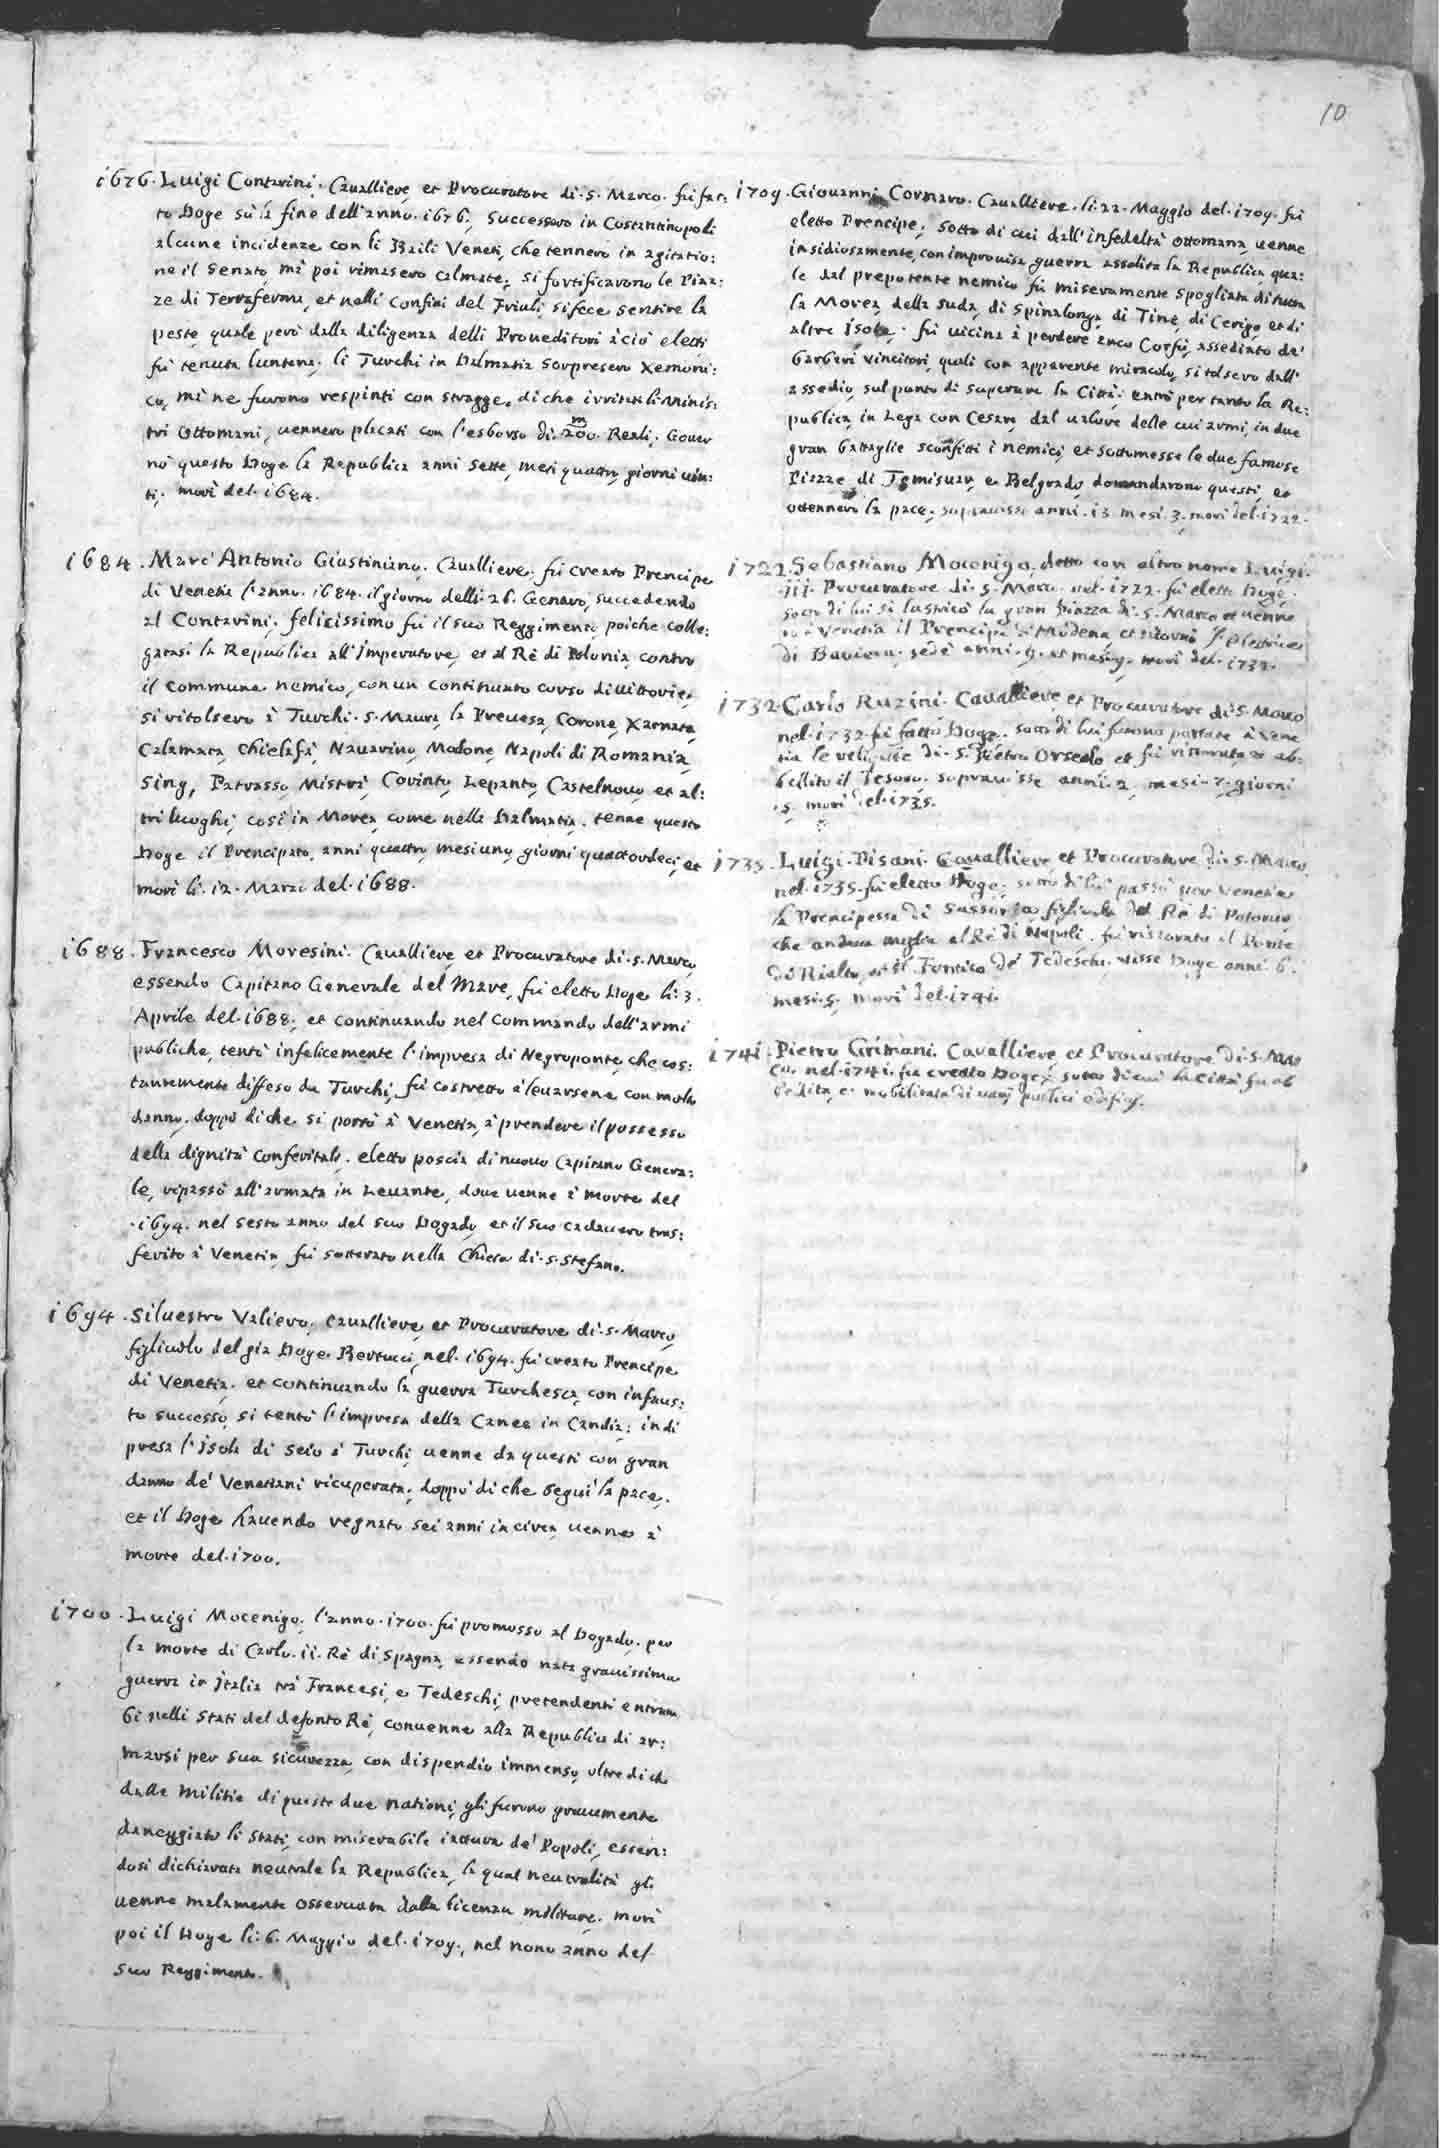 10
1676. Luigi Contarini. Caualliere, et Procuratore di. S. Marco. fù fat:
to Doge sù la fine dell'anno. 1676. Successero in Costantinopoli
alcune incidenze con li Baili Veneti, che tennero in agitatio:
ne il Senato, mà poi rimasero calmate; si fortificarono le Piaz:
ze di Terraferma, et nelli Confini del Friuli, si fece sentire la
peste, quale però dalla diligenza delli Proueditori à ciò eletti
fù tenuta luntana. li Turchi in Dalmatia sorpresero Xemoni:
co, mà ne furono respinti con stragge, di che irritati li Minis:
tri Ottomani, uennero placati con l'esborso di. 200.m Reali. Gouer
nò questo Doge la Republica anni sette, mesi quattro, giorni uin:
ti; morì del. 1684.
1684. Marc'Antonio Giustiniano. Caualliere. fù creato Prencipe
di Venetia l'anno. 1684. il giorno delli. 26. Genaro, succedendo
al Contarini; felicissimo fù il suo Reggimento, poiche colle:
gatasi la Republica all'Imperatore, et al Rè di Polonia, contro
il commune nemico, con un continuato corso di uittorie,
si ritolsero à Turchi. S. Maura, la Preuesa, Corone, Xarnata,
Calamata, Chielafà, Nauarino, Modone, Napoli di Romania,
Sing, Patrasso, Mistrà, Corinto, Lepanto, Castelnouo, et al:
tri luoghi, così in Morea, come nella Dalmatia. tenne questo
Doge il Prencipato, anni quattro, mesi uno, giorni quattordeci, et
morì li. 12. Marzo del. 1688.
1688. Francesco Moresini. Cauallieve, et Procuratore di. S. Marco,
essendo Capitano Generale del Mare, fù eletto Doge li: 3.
Aprile del. 1688., et continuando nel commando dell'armi
publiche, tentò infelicemente l'impresa di Negroponte, che cos:
tantemente diffeso da Turchi, fù costretto à leuarsene con molto
danno. doppò di che si portò à Venetia, à prendere il possesso
della dignità conferitale. eletto poscia di nuouo Capitano Genera:
le, ripassò all'armata in Leuante, doue uenne à morte del
. 1694. nel sesto anno del suo Dogado, et il suo cadauero tras:
ferito à Venetia, fù sotterato nella Chiesa di. S. Stefano.
1694. Siluestro Valiero. Cauallieve, et Procuratore di. S. Marco,
figliuolo del già Doge Bertucci, nel. 1694. fù creato Prencipe
di Venetia. et continuando la guerra Turchesca, con infaus:
to successo, si tentò l'impresa della Canea in Candia; indi
presa l'Isola di Scio à Turchi, uenne da questi con gran
danno de' Venetiani ricuperata; doppò di che seguì la pace.
et il Doge hauendo regnato sei anni in circa, uenne à
morte del. 1700.
1700. Luigi Mocenigo. l'anno. 1700. fù promosso al Dogado. per
la morte di Carlo. ii. Rè di Spagna, essendo nata grauissima
guerra in Italia trà Francesi, e Tedeschi, pretendenti entram
bi nelli Stati del defonto Rè, conuenne alla Republica di ar:
marsi per sua sicurezza, con dispendio immenso, oltre di che
dalle Militie di queste due nationi, gli furono grauemente
daneggiato li Stati, con miserabile iattura de' Popoli, essen:
dosi dichiarata neutrale la Republica, la qual neutralità gli
uenne malamente osseruata dalla licenza militare. morì
poi il Doge li: 6. Maggio del. 1709., nel nono anno del
suo Reggimento.
1709. Giouanni Cornaro. Caualliere. li. 22. Maggio del. 1709. fù
eletto Prencipe, sotto di cui dall'infedeltà Ottomana, uenne
insidiosamente, con improuisa guerra assalita la Republica, qua:
le dal prepotente nemico fù miseramente spogliata di tutta
la Morea, della Suda, di Spinalonga, di Tine, di Cerigo, et di
altre Isole. fù uicina à perdere anco Corfù, assediato da'
barberi vincitori, quali con apparente miracolo, si tolsero dall'
assedio, sul punto di superare la Città. entrò per tanto la Re:
publica, in Lega con Cesare, dal ualore delle cui armi, in due
gran battaglie sconfitti i nemici, et sottomesse le due famose
Piazze di Temisuar, e Belgrado, domandarono questi, et
ottennero la pace. soprauisse anni. 13. mesi. 3. morì del. 1722.
1722. Sebastiano Mocenigo, detto con altro nome Luigi.
. iii. Procuratore di. S. Marco. nel. 1722. fù eletto Doge.
sotto di lui si lastricò la gran Piazza di. S. Marco, et uenne
ro à Venetia il Prencipe di Modena, et
di Bauiera. sedè anni. 9. et mesi. 9. morì del. 1732.
1732. Carlo Ruzini. Cavalliere, et Procuratore di. S. Marco
nel. 1732. fù fatto Doge. sotto di lui furono portate à Vene
tia le reliquie di. S. Pietro Orseolo et fù ristorato et ab:
bellito il Tesoro. soprauisse anni. 2. mesi. 7. giorni
. 5. morì del. 1735.
1735. Luigi Pisani. Cavalliere, et Procuratore di. S. Marco,
nel. 1735. fù eletto Doge; sotto di lui passò per Venetia
la Prencipessa di Sassonia, figliuola del Rè di Polonia,
che andaua moglie al Rè di Napoli. fù ristorato il Ponte
di Rialto, et il Fontico de' Tedeschi. uisse Doge anni. 6.
mesi. 5. morì del. 1741.
1741. Pietro Grimani. Cavalliere, et Procuratore di. S. Mar
co. nel. 1741. fù creato Doge; sotto di cui la Città fù ab
bellita, e nobilitata di uarij publici edificij.